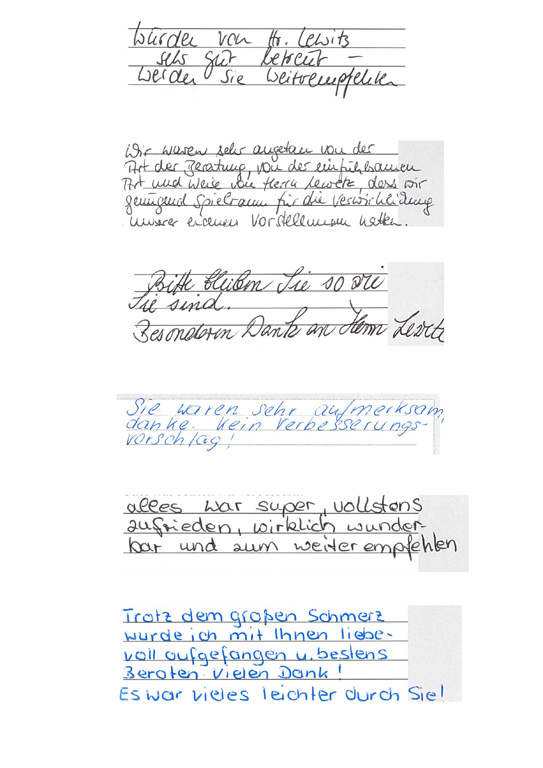 wurden von Hr. Lewitz
sehr gut betreut –
werden Sie weiterempfehlen
Wir waren sehr angetan von der
Art der Beratung, von der einfühlsamen
Art und Weise von Herrn Lewitz, dass wir
genügend Spielraum für die Verwirklichung
unserer eigenen Vorstellungen hatten.
Bitte bleiben Sie so wie
Sie sind.
Besonderen Dank an Herrn Lewitz
Sie waren sehr aufmerksam,
danke. Kein Verbesserungs-
vorschlag!
alles war super, vollstens
zufrieden, wirklich wunder-
bar und zum weiterempfehlen
Trotz dem großen Schmerz
wurde ich mit Ihnen liebe-
voll aufgefangen u. bestens
Beraten. Vielen Dank!
Es war vieles leichter durch Sie!